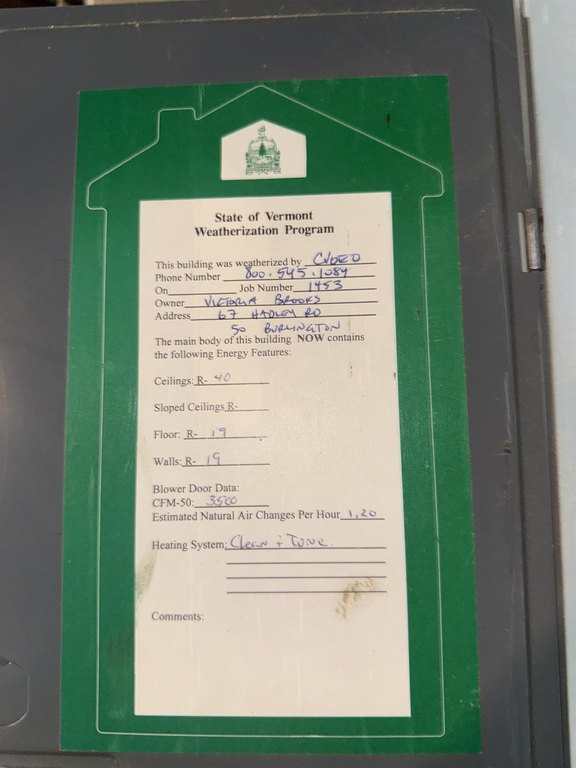 State of Vermont
Weatherization Program
This building was weatherized by CVOEO
Phone Number 800.545.1084
On Job Number 1453
Owner VICTORIA BROOKS
Address 67 HADLEY RD
SO BURLINGTON
The main body of this building NOW contains
the following Energy Features:
Ceilings: R- 40
Sloped Ceilings R-
Floor: R- 19
Walls: R- 19
Blower Door Data:
CFM-50: 3500
Estimated Natural Air Changes Per Hour 1.20
Heating System: Clean + Tune
Comments: